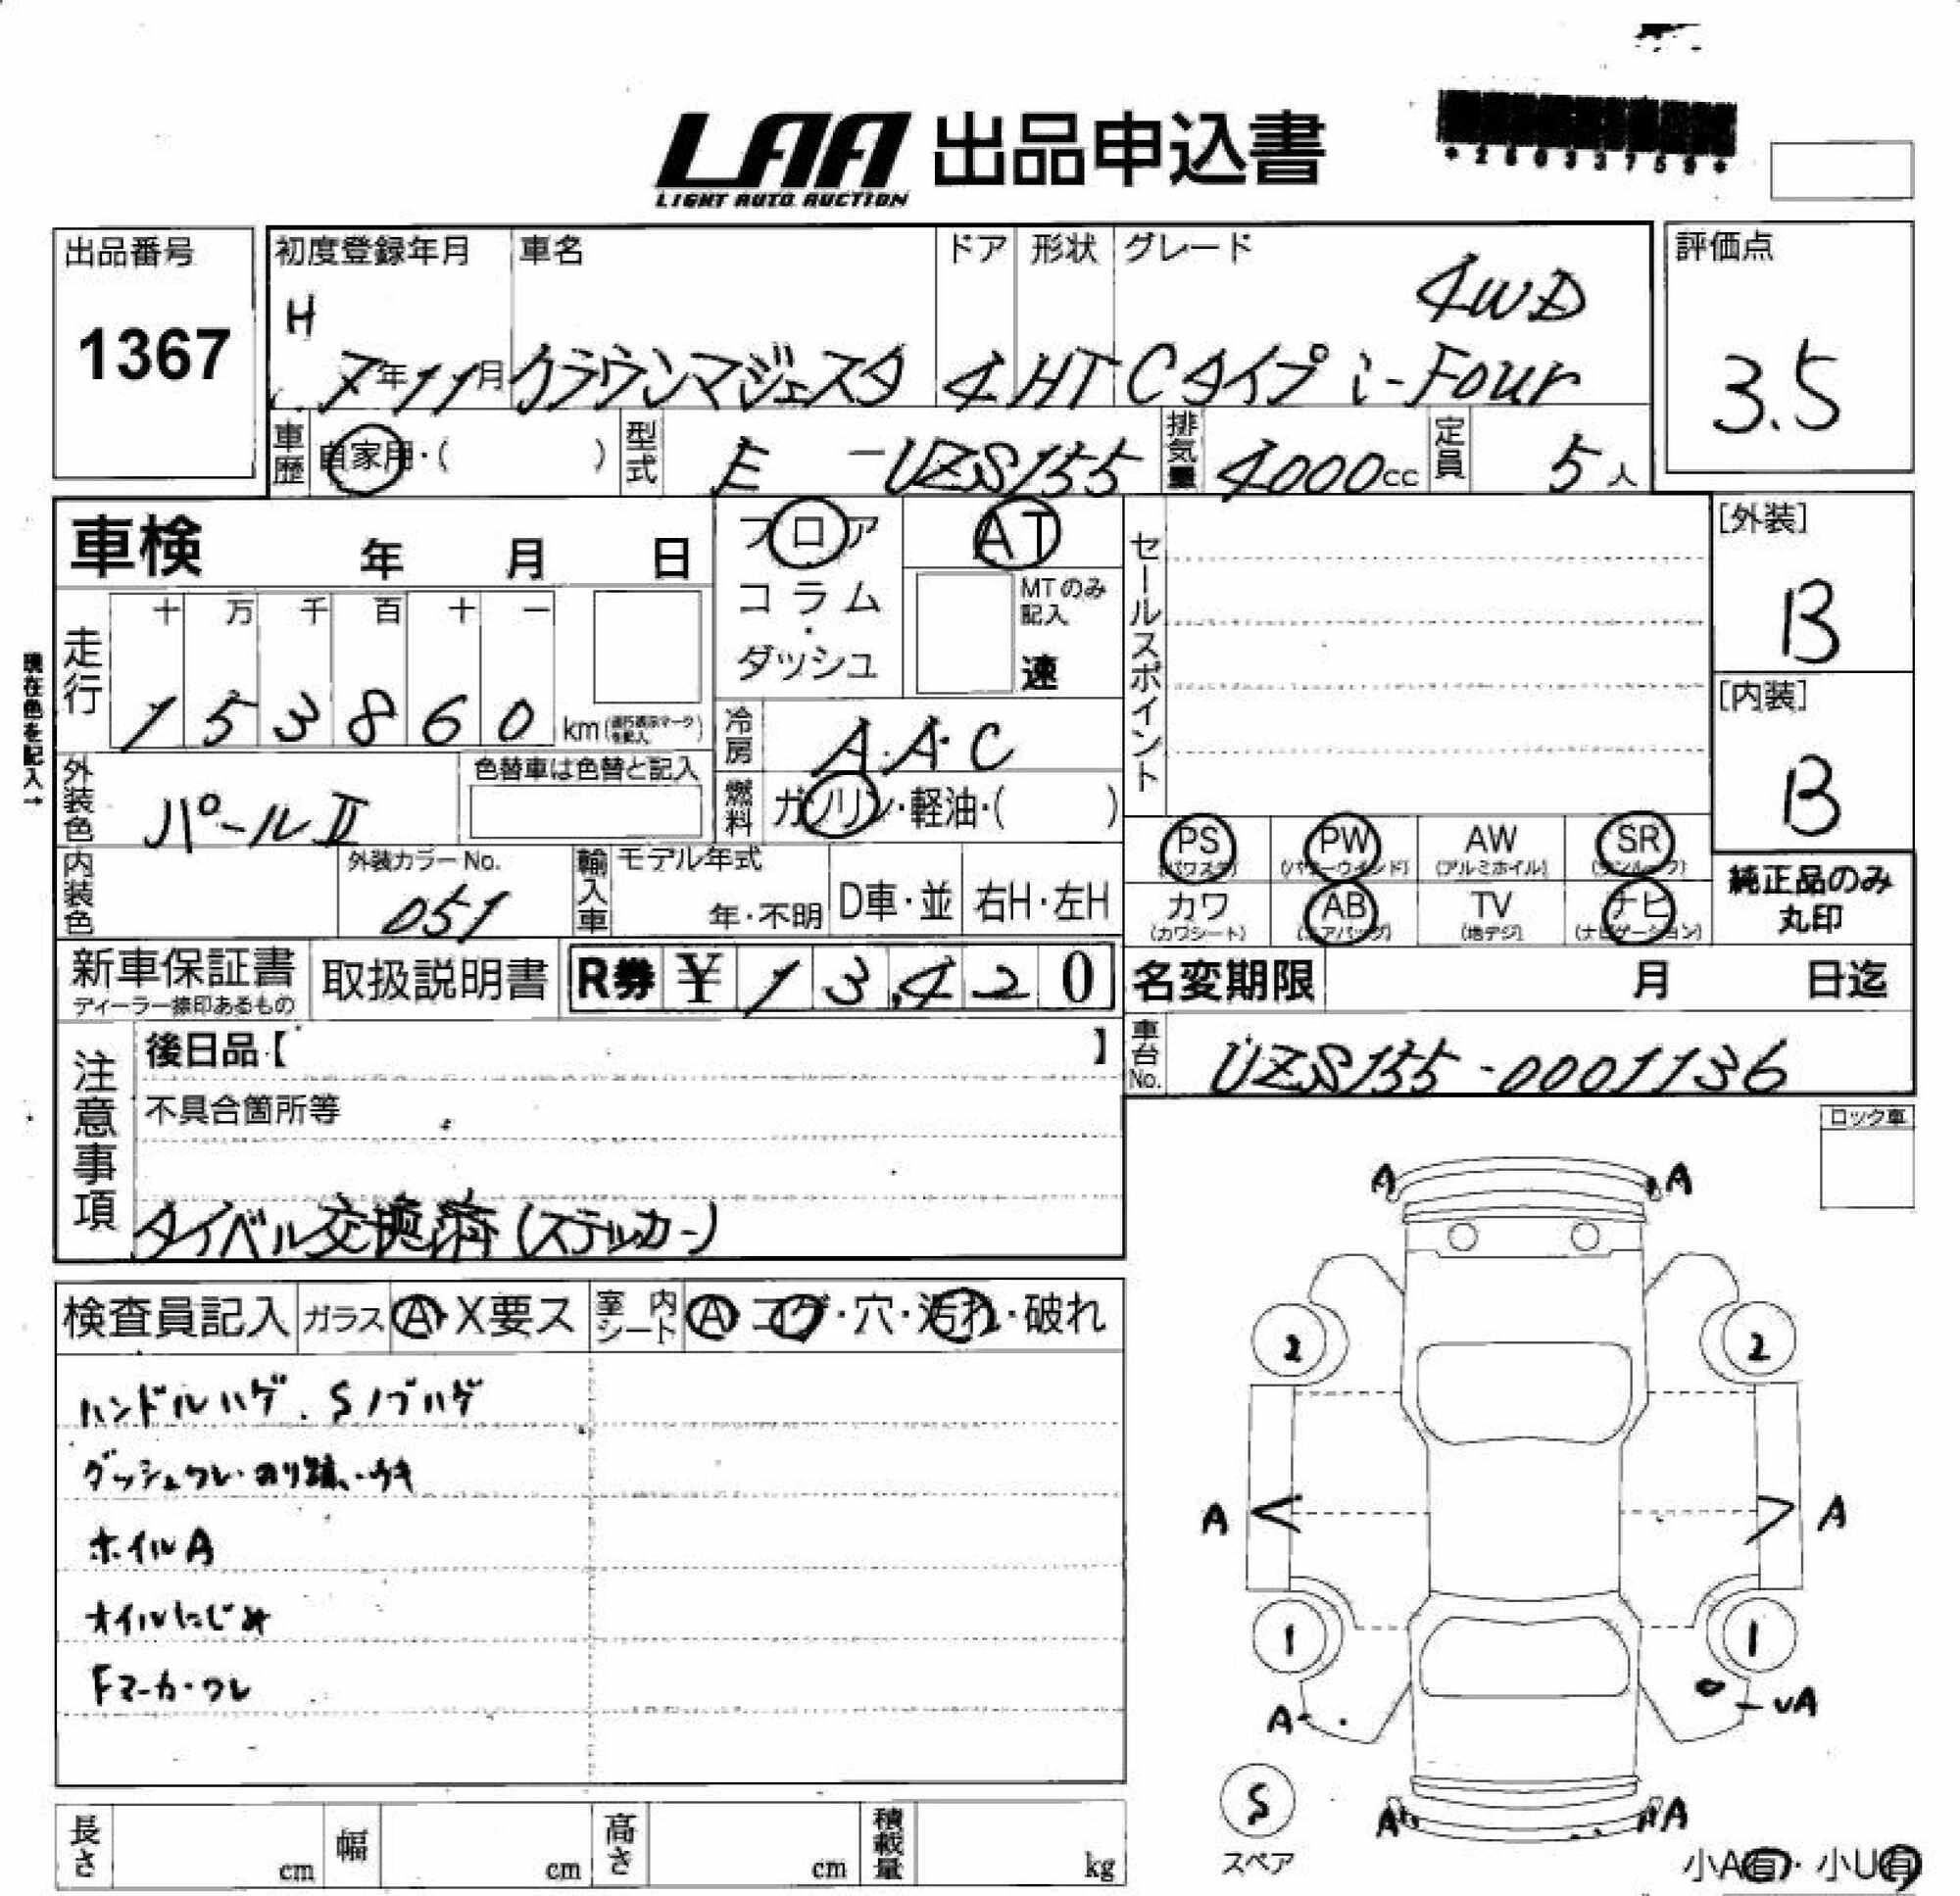 LAA 出品申込書
LIGHT AUTO AUCTION
出品番号
1367
初度登録年月 車名 ドア 形状 グレード
H 7年11月 クラウンマジェスタ 4 HT Cタイプ i-Four 4WD
評価点
3.5
車歴 自家用・( ) 型式 E -UZS155 排気量 4000cc 定員 5人
車検 年 月 日
フロア
コラム
・
ダッシュ
AT
MTのみ
記入
速
セールスポイント
[外装]
B
[内装]
B
現在色を記入→
走行 十 万 千 百 十 一
1 5 3 8 6 0 km
冷房 A.A.C
外装色 パールⅡ 色替車は色替と記入
燃料 ガソリン・軽油・( )
内装色 外装カラーNo. 051
輸入車 モデル年式 年・不明 D車・並 右H・左H
PS (パワステ) PW (パワーウインド) AW (アルミホイル) SR (サンルーフ)
カワ (カワシート) AB (エアバッグ) TV (地デジ) ナビ (ナビゲーション)
純正品のみ
丸印
新車保証書
ディーラー捺印あるもの
取扱説明書 R券 ¥ 1 3,4 2 0
名変期限 月 日迄
車台No. UZS155-0001136
注意事項
後日品【 】
不具合箇所等
タイベル交換済(ステッカー)
ロック車
検査員記入 ガラス A・X要ス 室内シート A コゲ・穴・汚れ・破れ
ハンドルハゲ. Sノブハゲ
ダッシュワレ・のり跡、・ウキ
ホイルA
オイルにじみ
Fマーカ・ワレ
A A
2 2
A A
1 1
A UA
S
スペア
A A
小A有・小U有
長さ cm 幅 cm 高さ cm 積載量 kg